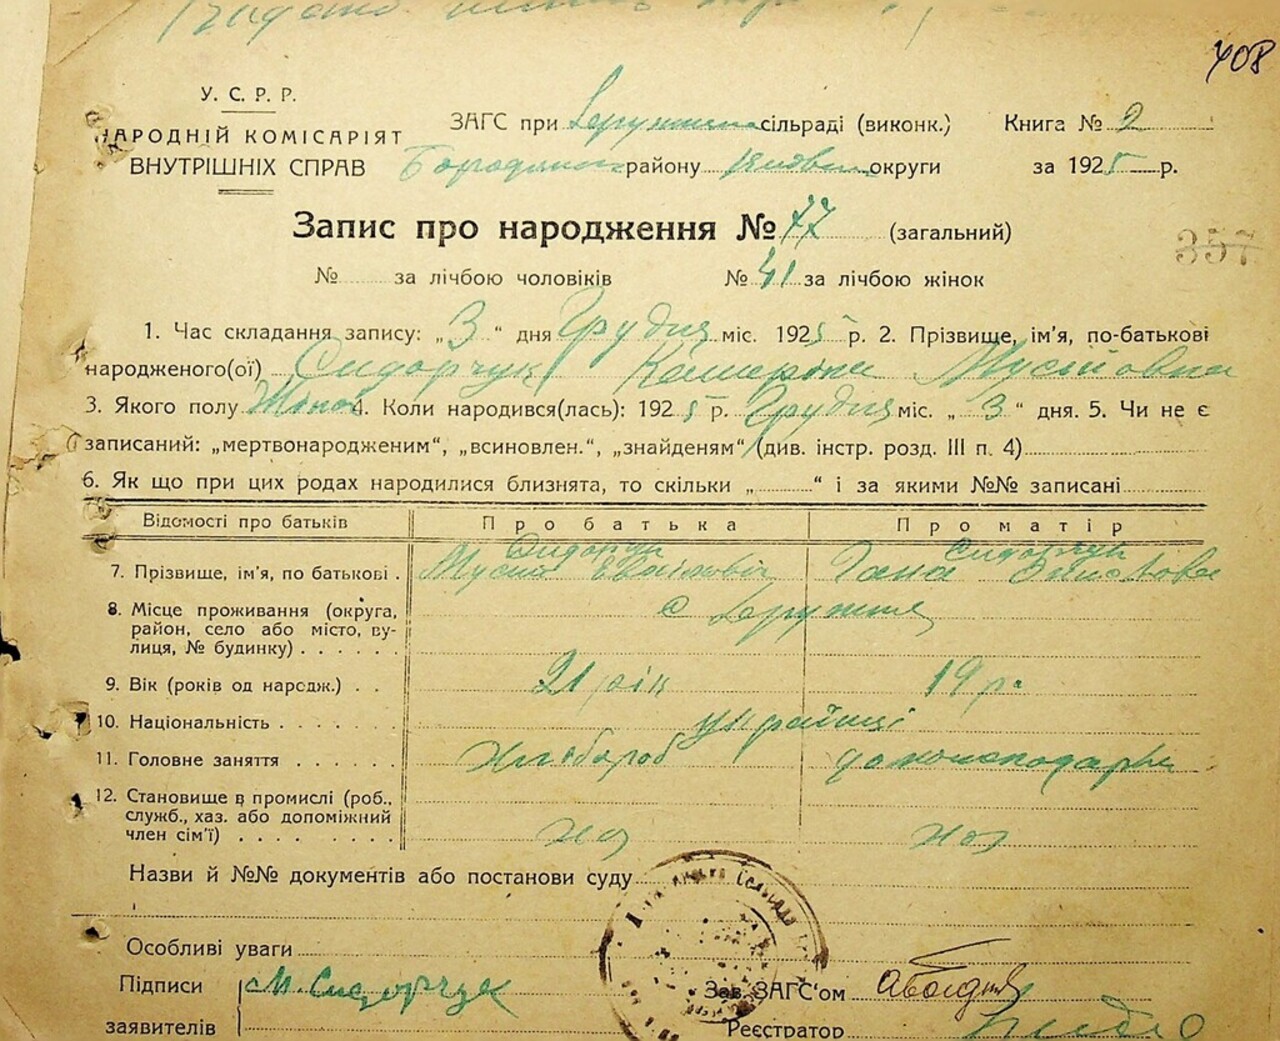 408
У. С. Р. Р.
НАРОДНІЙ КОМІСАРІЯТ
ВНУТРІШНІХ СПРАВ
ЗАГС при сільраді (виконк.) Книга № 2
району округи за 1925 р.
Запис про народження № 77 (загальний)
357
№ за лічбою чоловіків № 41 за лічбою жінок
1. Час складання запису: „3“ дня Грудня міс. 1925 р. 2. Прізвище, ім'я, по-батькові
народженого(ої) Сидорчук Катерина Мусіовна
3. Якого полу Жіноч 4. Коли народився(лась): 1925 р. Грудня міс. „3“ дня. 5. Чи не є
записаний: „мертвонародженим“, „всиновлен.“, „знайденям“ (див. інстр. розд. III п. 4)
6. Як що при цих родах народилися близнята, то скільки „ “ і за якими №№ записані
Відомості про батьків Про батька Про матір
7. Прізвище, ім'я, по батькові . Сидорчук Мусій Сидорчук Гана
8. Місце проживання (округа,
район, село або місто, ву-
лиця, № будинку) . . . . . .
9. Вік (років од народж.) . . 21 рік 19 р.
10. Національність . . . . . . . українці
11. Головне заняття . . . . . . Хлібороб домогосподарка
12. Становище в промислі (роб.,
служб., хаз. або допоміжний
член сім'ї) . . . . . . . . хоз хоз
Назви й №№ документів або постанови суду
Особливі уваги
Підписи М. Сидорчук Зав. ЗАГС'ом
заявителів Реєстратор